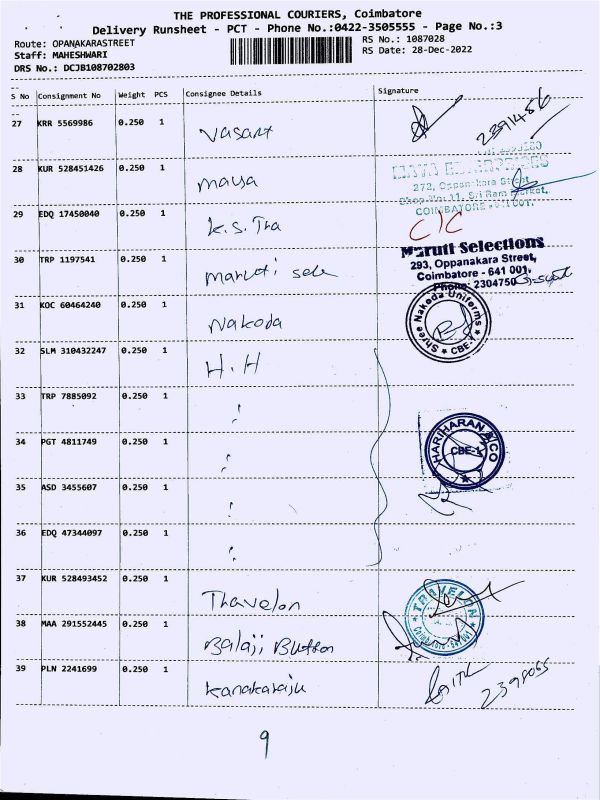 THE PROFESSIONAL COURIERS, Coimbatore
Delivery Runsheet - PCT - Phone No.:0422-3505555 - Page No.:3
Route: OPANAKARASTREET
RS No.: 1087028
Staff: MAHESHWARI
RS Date: 28-Dec-2022
DRS No.: DCJB108702803
S No Consignment No Weight PCS Consignee Details Signature
27 KRR 5569986 0.250 1 Vasant 2391456
28 KUR 528451426 0.250 1 Maya
272, Oppanakara Street
COIMBATORE
29 EDQ 17450040 0.250 1 K.S. Tra C/C
30 TRP 1197541 0.250 1 Maruti sele
Maruti Selections
293, Oppanakara Street,
Coimbatore - 641 001.
Phone: 2304750
31 KOC 60464240 0.250 1 Nakoda
Shree Nakoda Uniforms
CBE-1
32 SLM 310432247 0.250 1 H.H
33 TRP 7885092 0.250 1
34 PGT 4811749 0.250 1
HARIHARAN & CO
CBE-1
35 ASD 3455607 0.250 1
36 EDQ 47344097 0.250 1
37 KUR 528493452 0.250 1 Thavelon
TRAVELON
38 MAA 291552445 0.250 1 Balaji Button
39 PLN 2241699 0.250 1 Kanakaraju
9